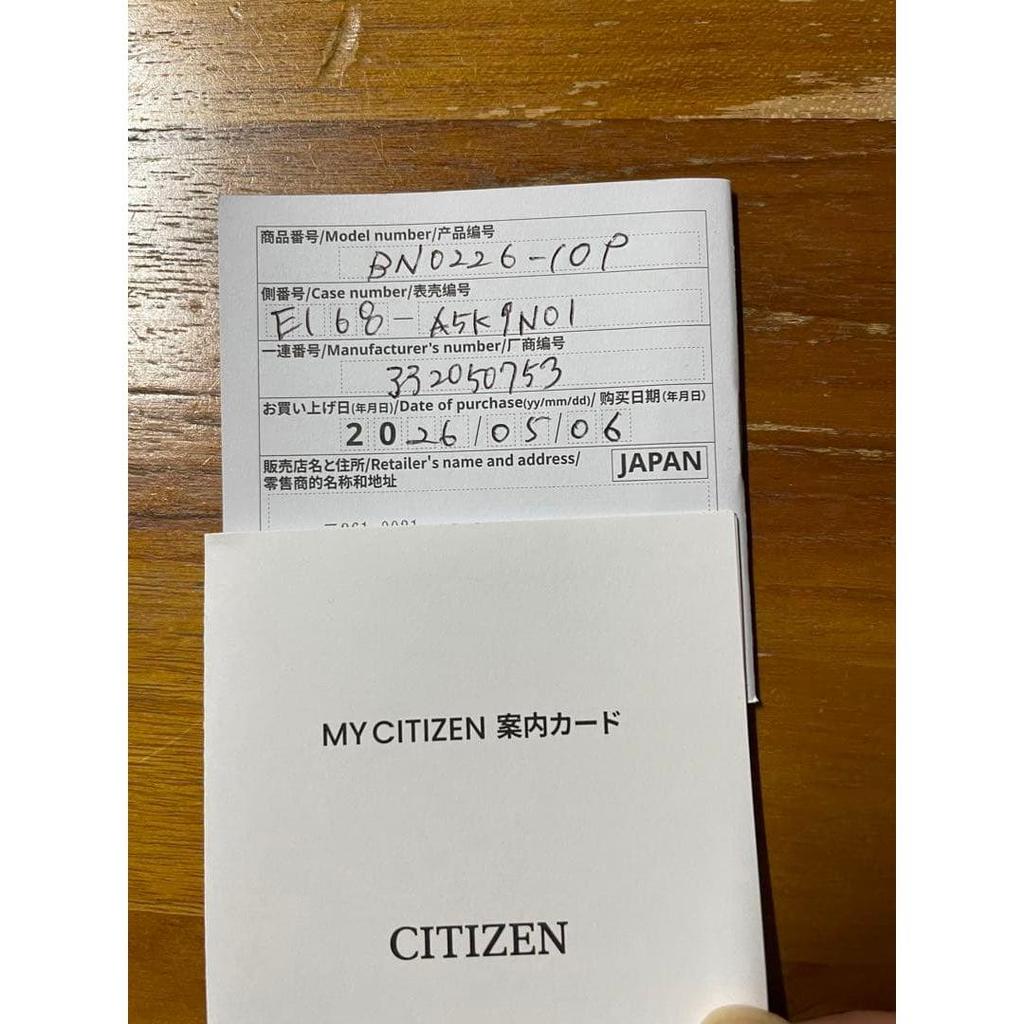 商品番号/Model number/产品编号
BN0226-10P
側番号/Case number/表壳编号
E168-A5K9N01
一連番号/Manufacturer's number/厂商编号
332050753
お買い上げ日(年月日)/Date of purchase(yy/mm/dd)/ 购买日期(年月日)
2026/05/06
販売店名と住所/Retailer's name and address/
零售商的名称和地址
JAPAN
MY CITIZEN 案内カード
CITIZEN